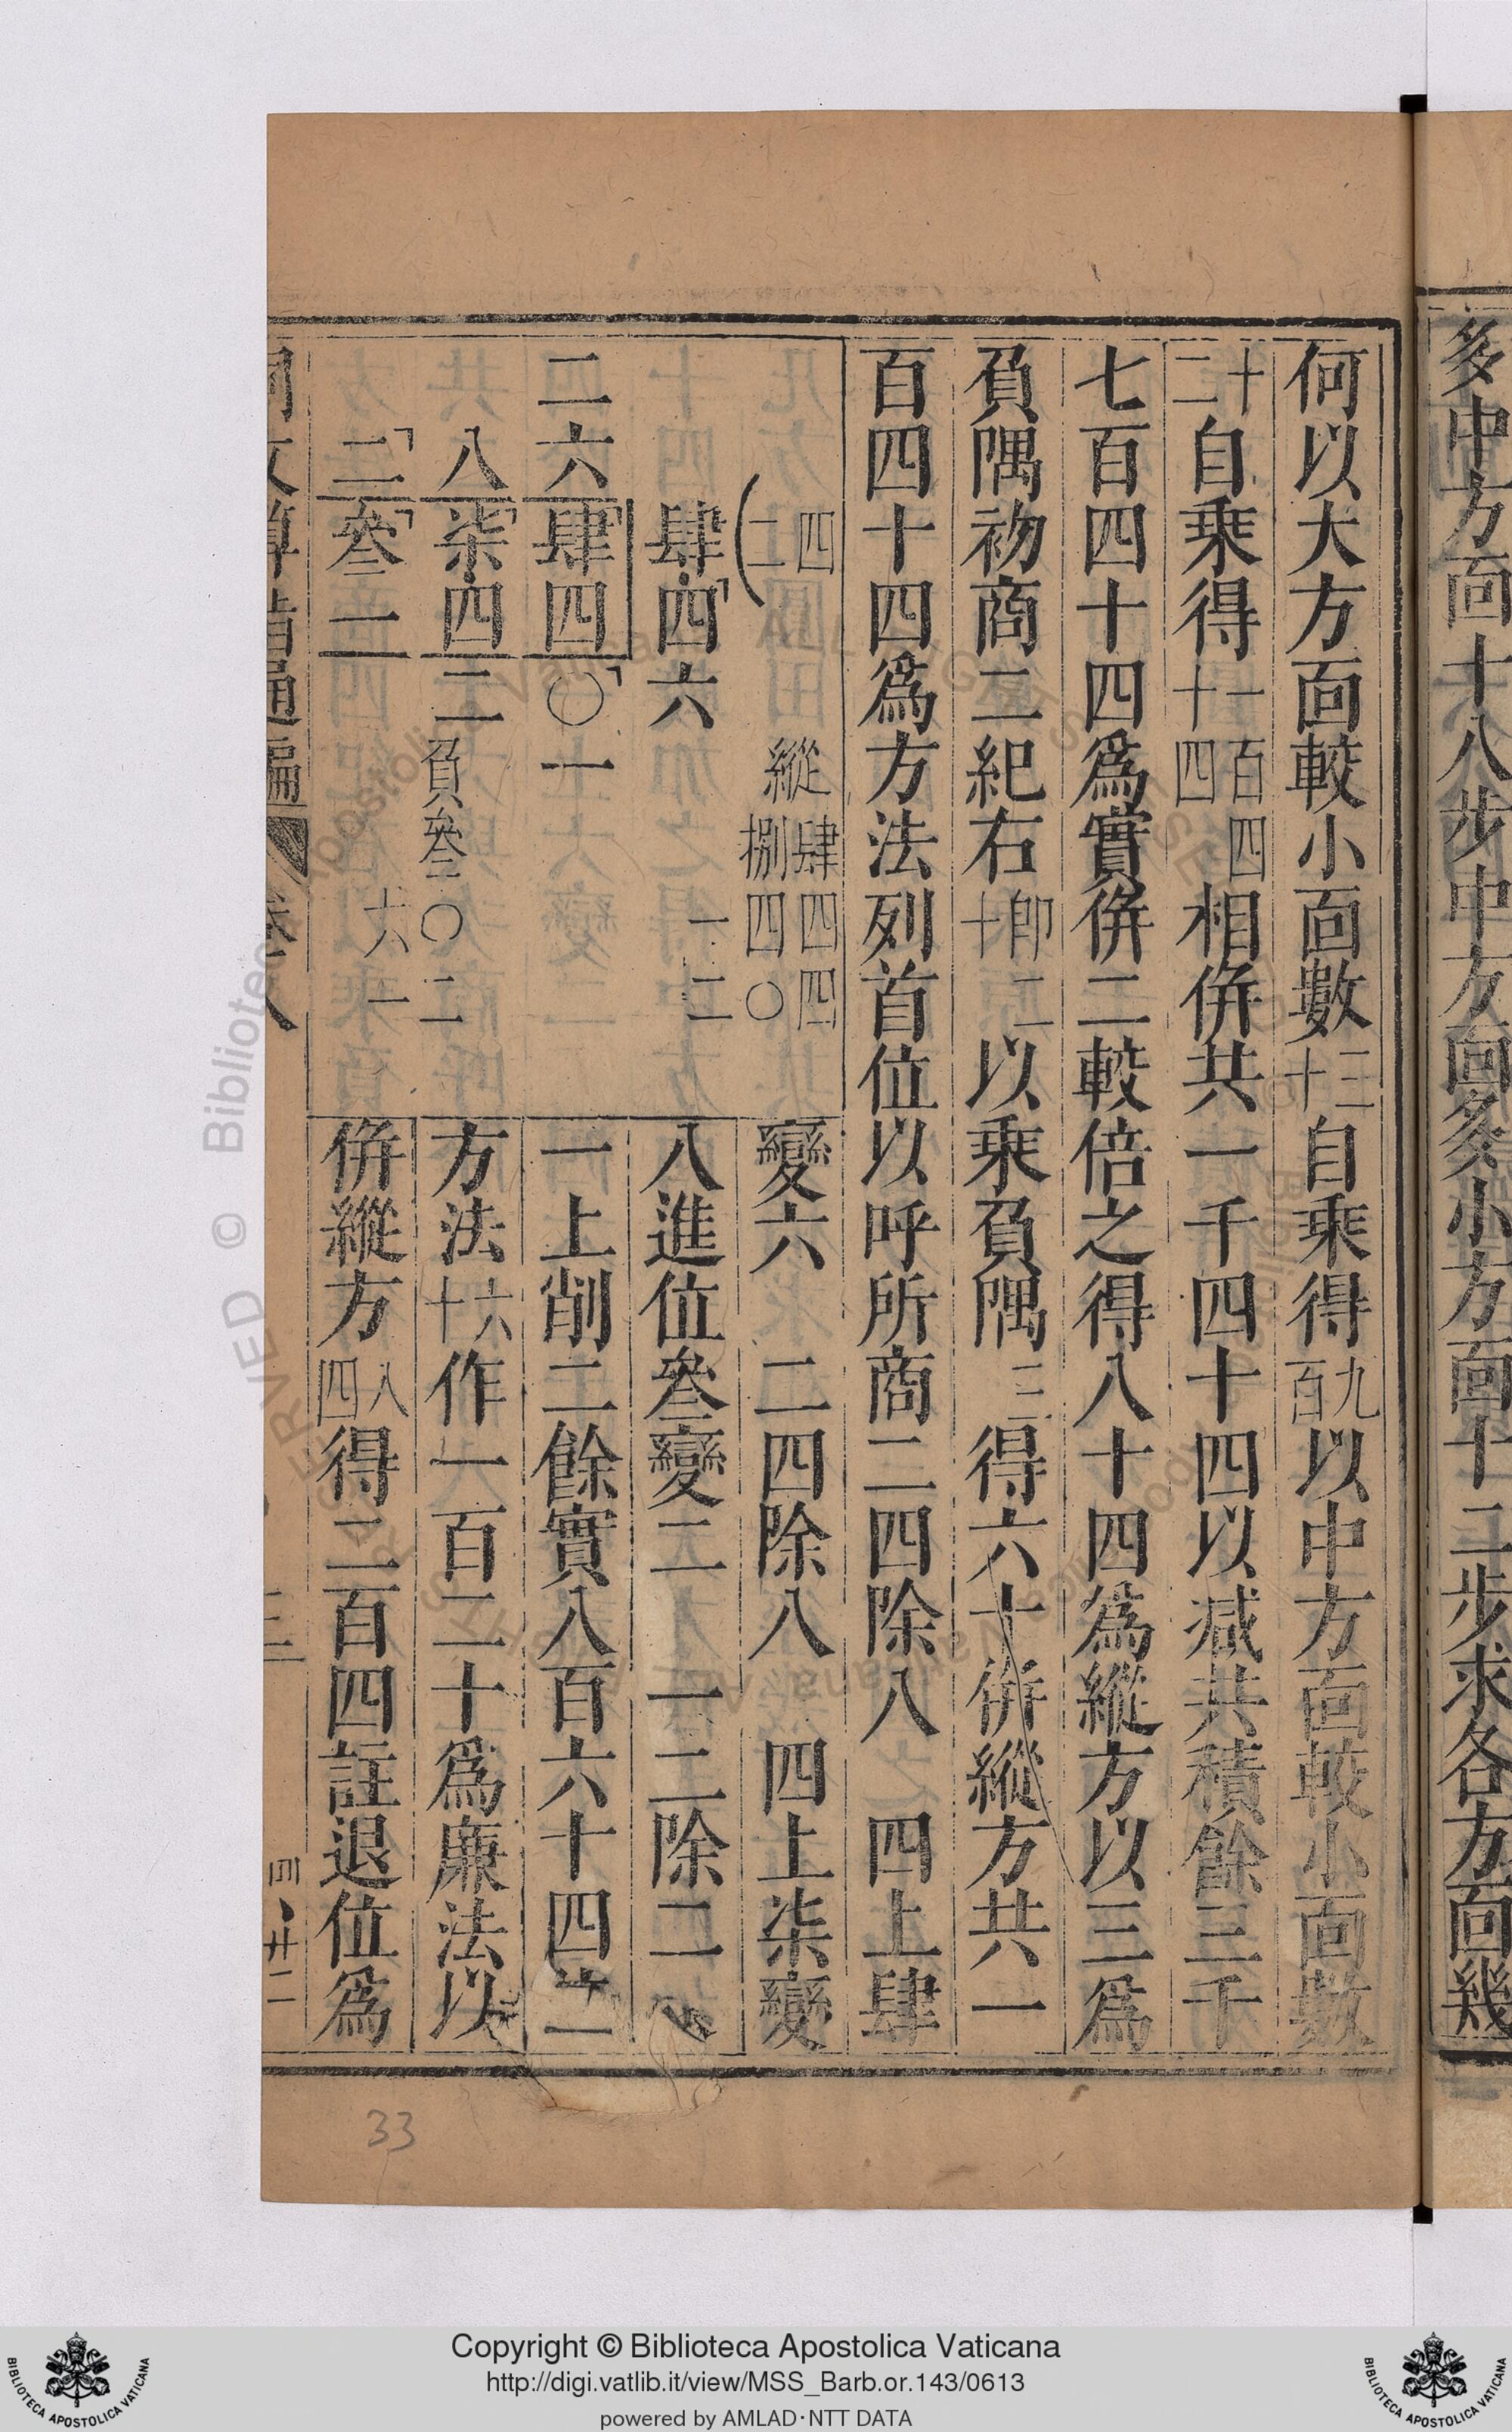 多中方面十八步中方面多小方面十二步求各方面幾
何以大方面較小面數三十自乘得九百以中方面較小面數
十二自乘得一百四十四相併共一千四十四以減共積餘三千
七百四十四爲實併二較倍之得八十四爲縱方以三爲
負隅初商二紀右卽二十以乘負隅三得六十併縱方共一
百四十四爲方法列首位以呼所商二四除八 四上肆
變六 二四除八 四上柒變
八進位叄變二 一二除二
一上削二餘實八百六十四 二
方法六十作一百二十爲廉法以
併縱方八四得二百四註退位爲
四二
縱
肆四四
捌四〇
肆四六
一二
二六肆四〇一
八柒四二
負叄〇二
二叄一
六一
同文算指通編 卷八
三
四、廿二
33
© Biblioteca Apostolica Vaticana
Copyright © Biblioteca Apostolica Vaticana
http://digi.vatlib.it/view/MSS_Barb.or.143/0613
powered by AMLAD·NTT DATA
BIBLIOTECA APOSTOLICA VATICANA
BIBLIOTECA APOSTOLICA VATICANA